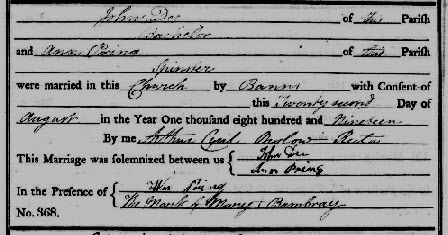 John Dee of this Parish
Bachelor
and Ann Pring of this Parish
Spinster
were married in this Church by Banns with Consent of
this Twenty second Day of
August in the Year One thousand eight hundred and Nineteen
By me Arthur Cyril Onslow Rector
This Marriage was solemnized between us { John Dee
Ann Pring
In the Presence of { Wm Pring
The Mark of Mary X Bambray
No. 368.